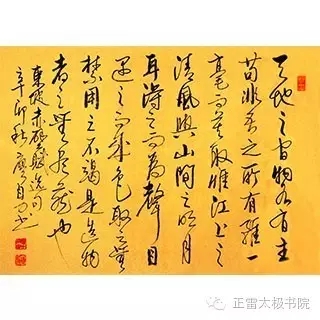 天地之間物各有主
苟非吾之所有雖一
毫而莫取惟江上之
清風與山間之明月
耳得之而為聲目
遇之而成色取之無
禁用之不竭是造物
者之無盡藏也
東坡赤壁賦選句
辛卯秋
正雷太极书院